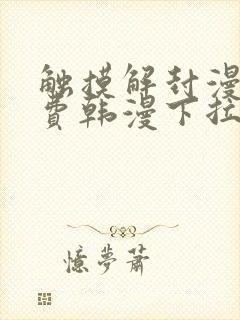 触摸解封漫
费韩漫下拉
憶夢蕭